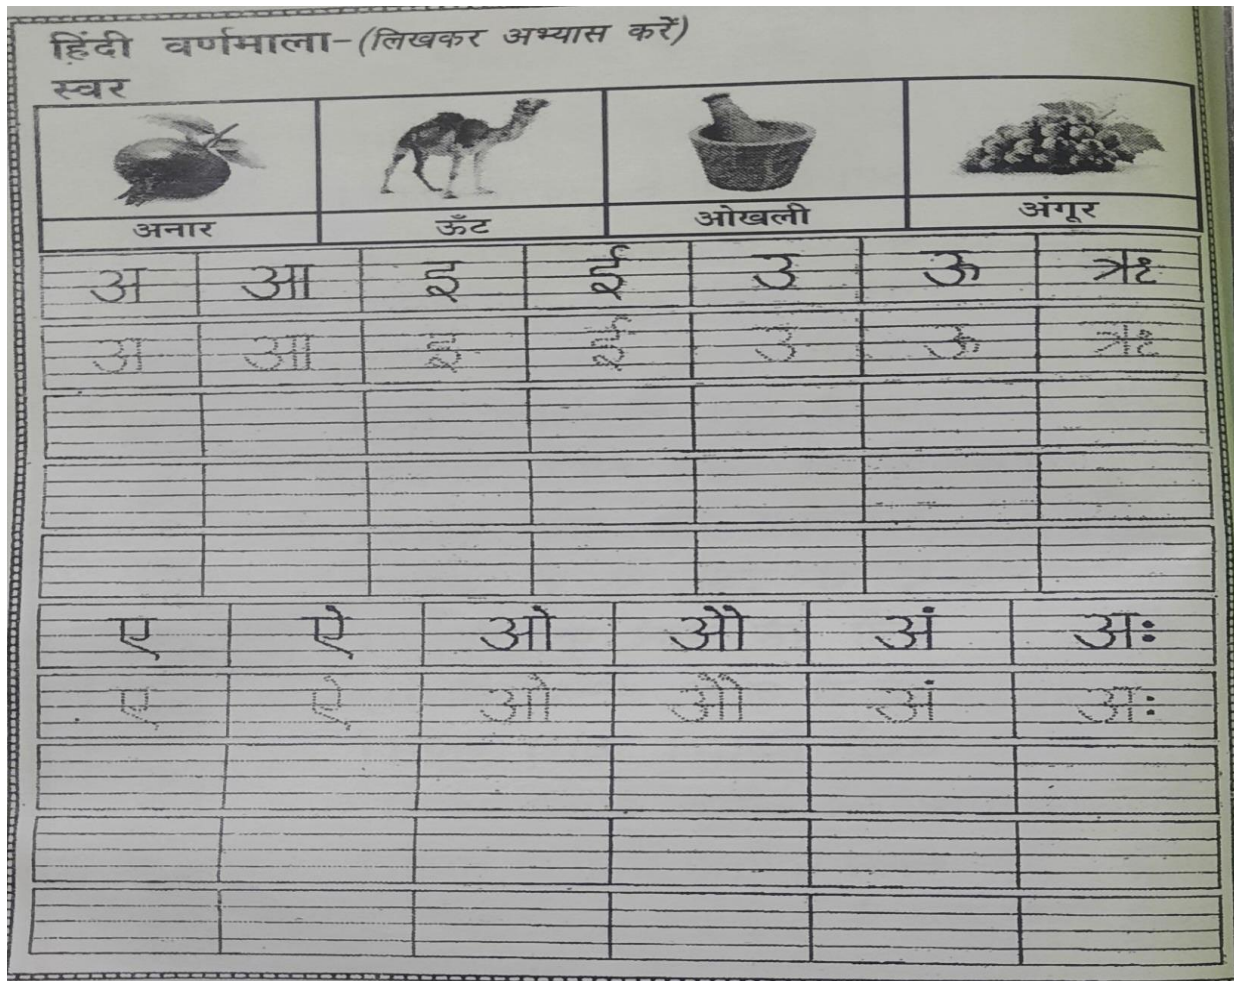 हिंदी वर्णमाला-(लिखकर अभ्यास करें)
स्वर
अनार ऊँट ओखली अंगूर
अ आ इ ई उ ऊ ऋ
अ आ इ ई उ ऊ ऋ
ए ऐ ओ औ अं अः
ए ऐ ओ औ अं अः